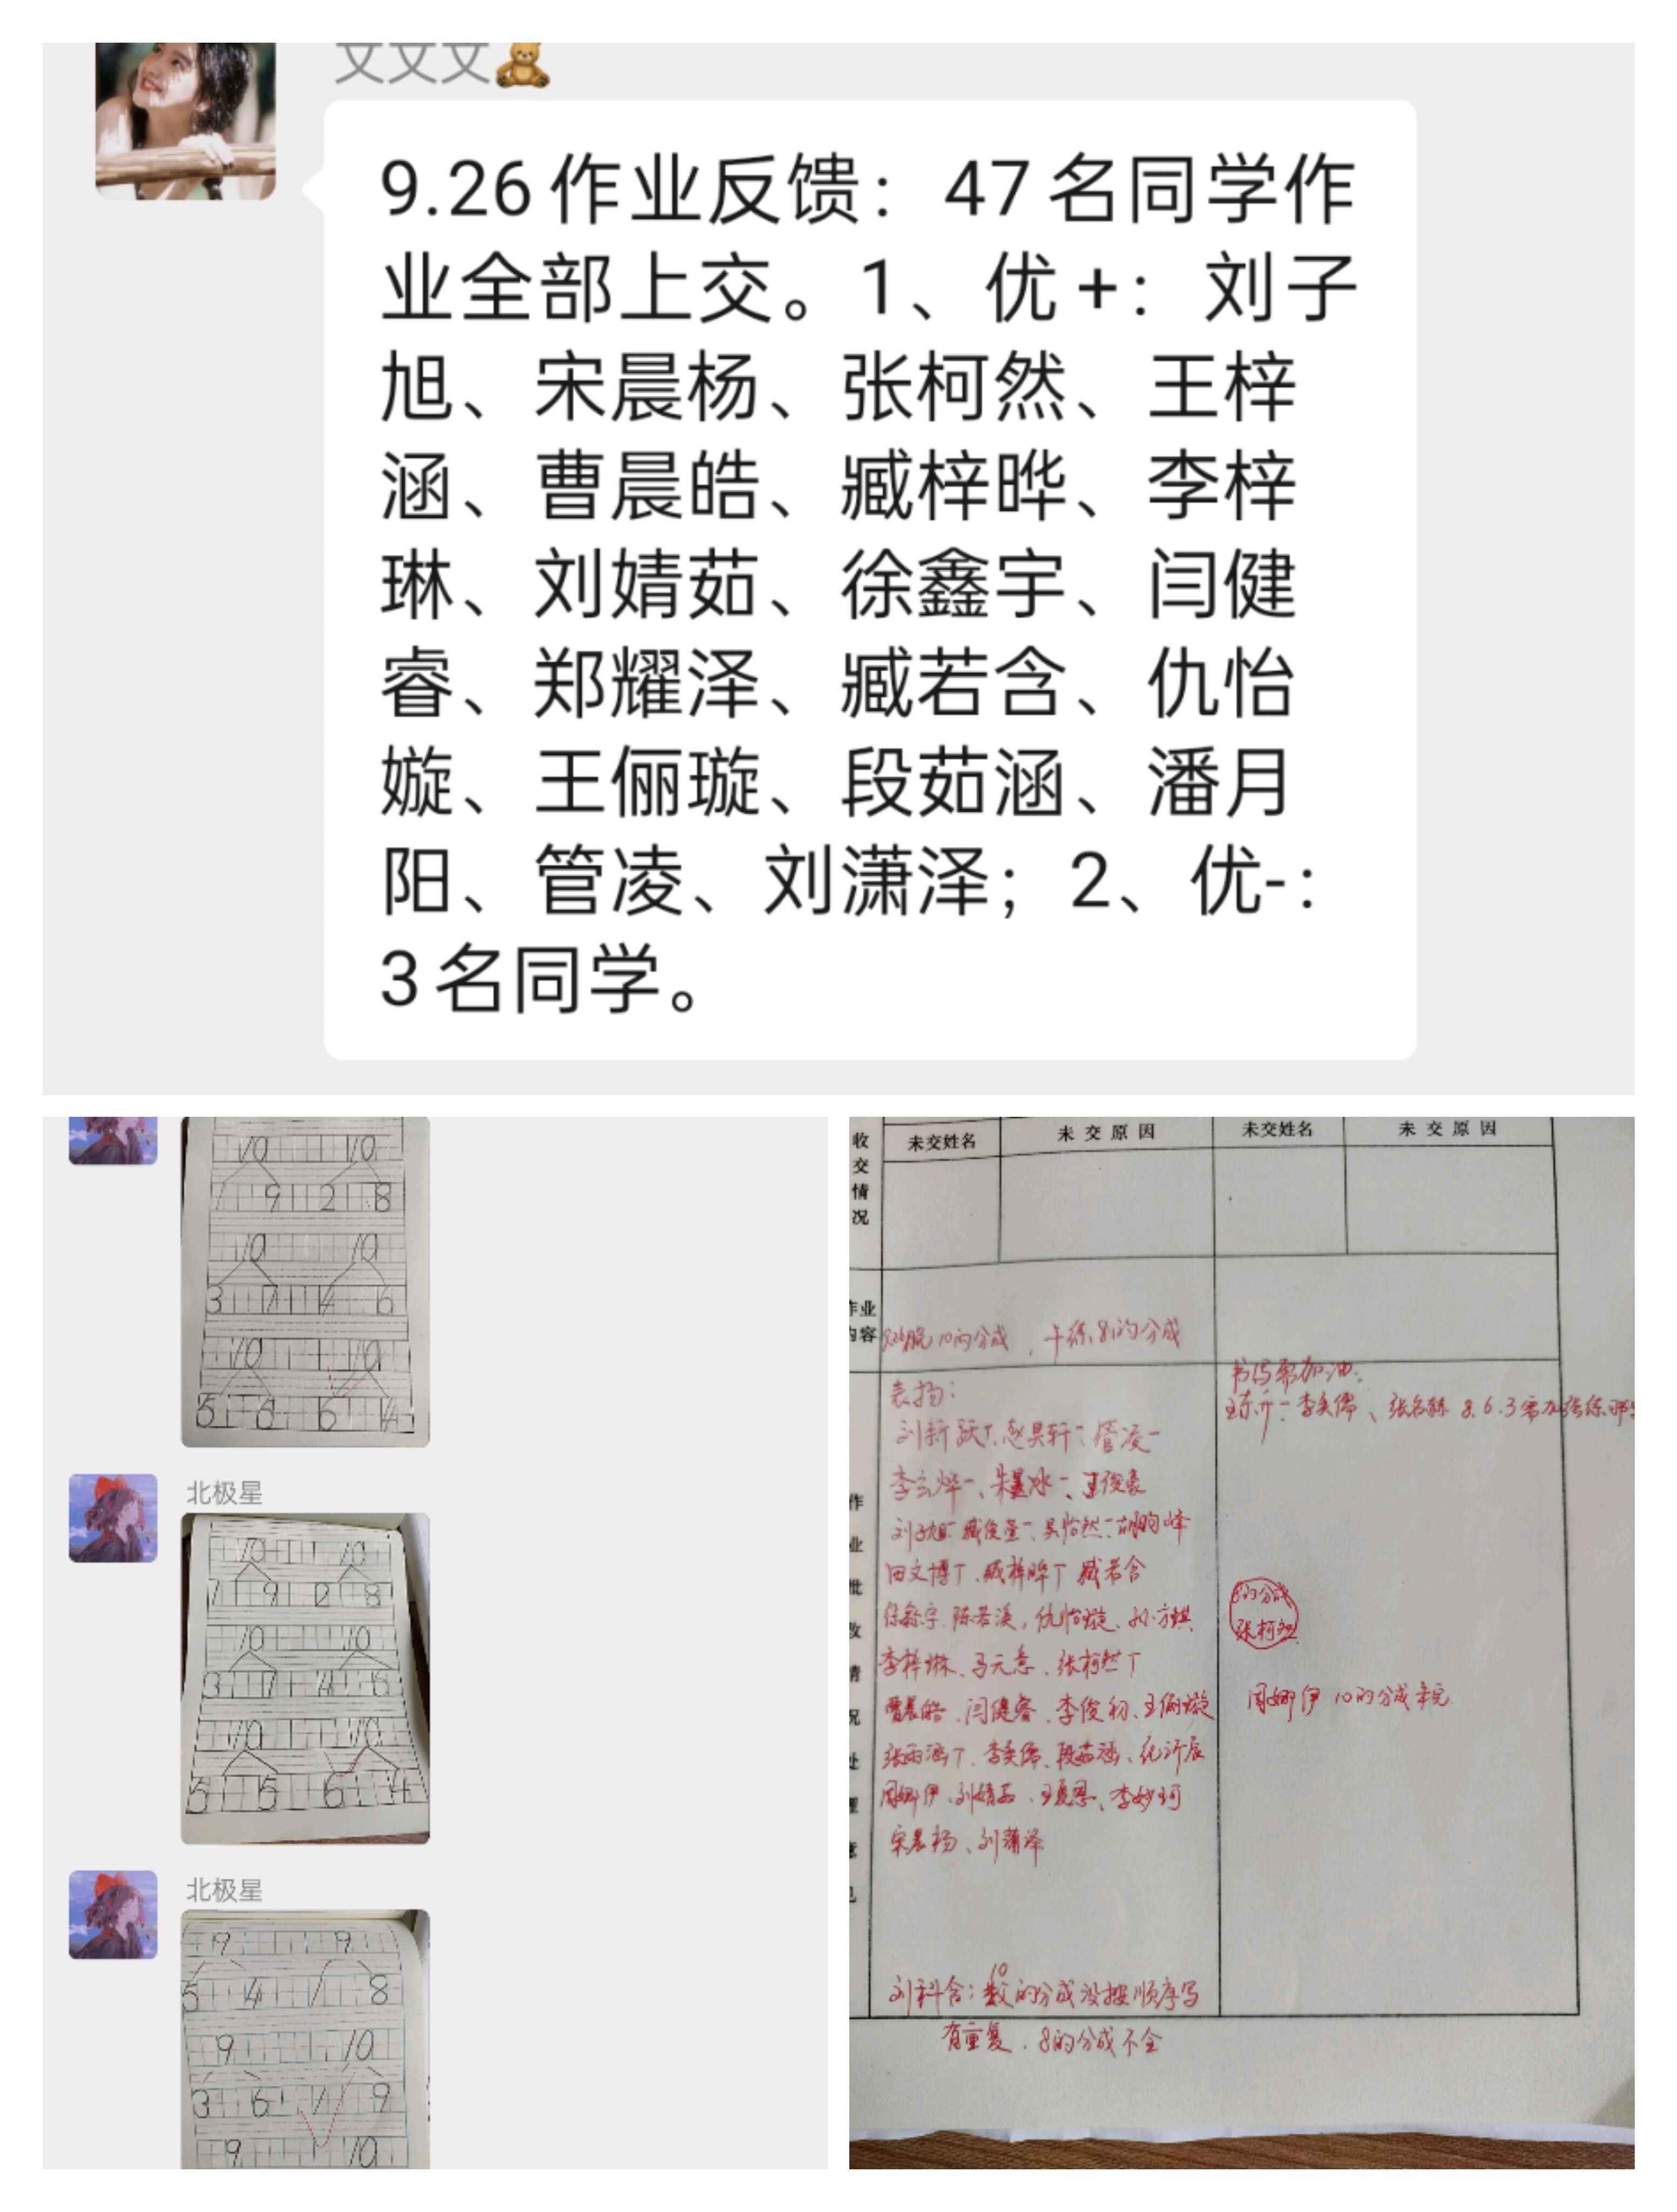 文文文
9.26作业反馈：47名同学作
业全部上交。1、优+：刘子
旭、宋晨杨、张柯然、王梓
涵、曹晨皓、臧梓晔、李梓
琳、刘婧茹、徐鑫宇、闫健
睿、郑耀泽、臧若含、仇怡
嫙、王俪璇、段茹涵、潘月
阳、管凌、刘潇泽；2、优-：
3名同学。
10 10
1 9 2 8
10 10
3 7 4 6
10 10
5 6 4
北极星
10 10
1 9 2 8
10 10
3 7 4 6
10 10
5 5 6 4
北极星
9 9
5 4 1 8
9 10
3 6 1 9
9 10
收交情况
未交姓名 未交原因 未交姓名 未交原因
作业内容
10的分成，午练8的分成
作业批改情况处理意见
表扬：
管凌
王俊豪
刘子旭 吴怡然
田文博 臧梓晔 臧若含
徐鑫宇、陈若溪、仇怡嫙、
李梓琳、马元意、张柯然
曹晨皓、闫健睿、李俊初、王俪璇
张雨涵、李奕儒、段茹涵、纪沂辰
周娜伊、刘婧茹、王夏恩、李妙珂
宋晨杨、刘潇泽
刘科含：10的分成没按顺序写
有重复、8的分成不全
书写需加油：
李奕儒、 8.6.3需加强练习
8的分成
张柯然
周娜伊 10的分成未完